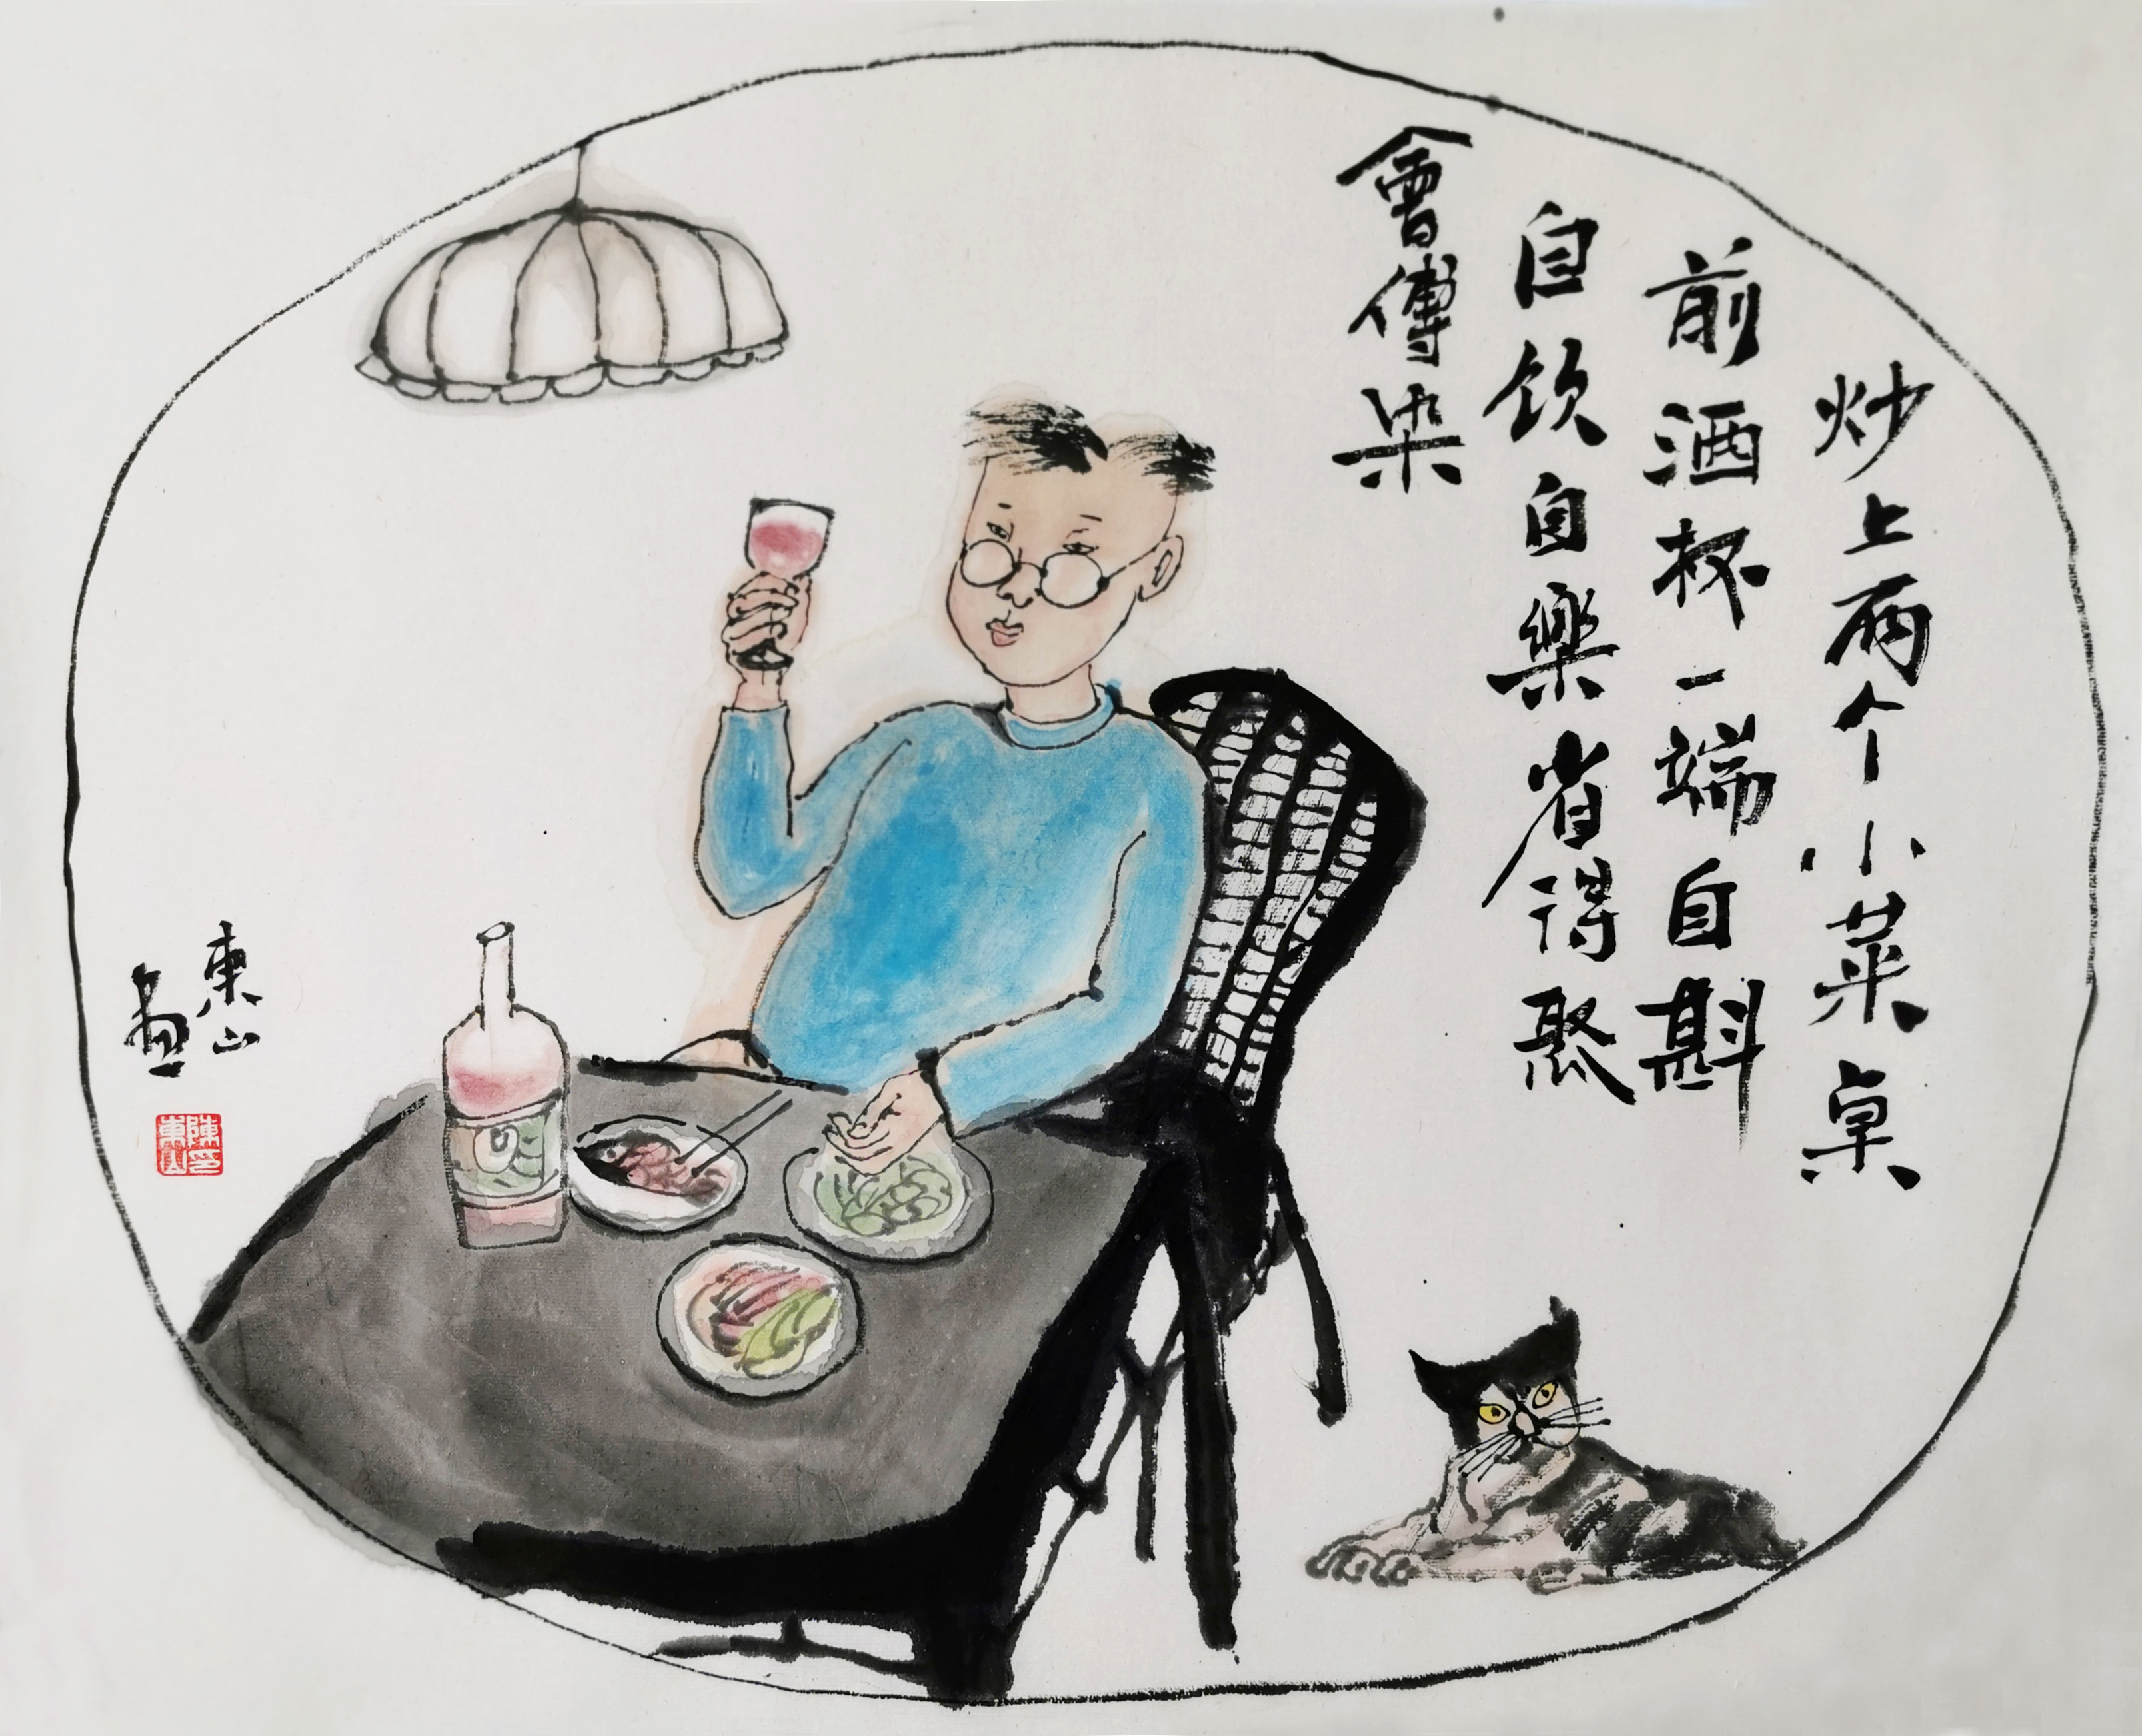 炒上两个小菜桌
前酒杯一端自斟
自饮自樂省得聚
會傳染
東山
畫
陳印
東山